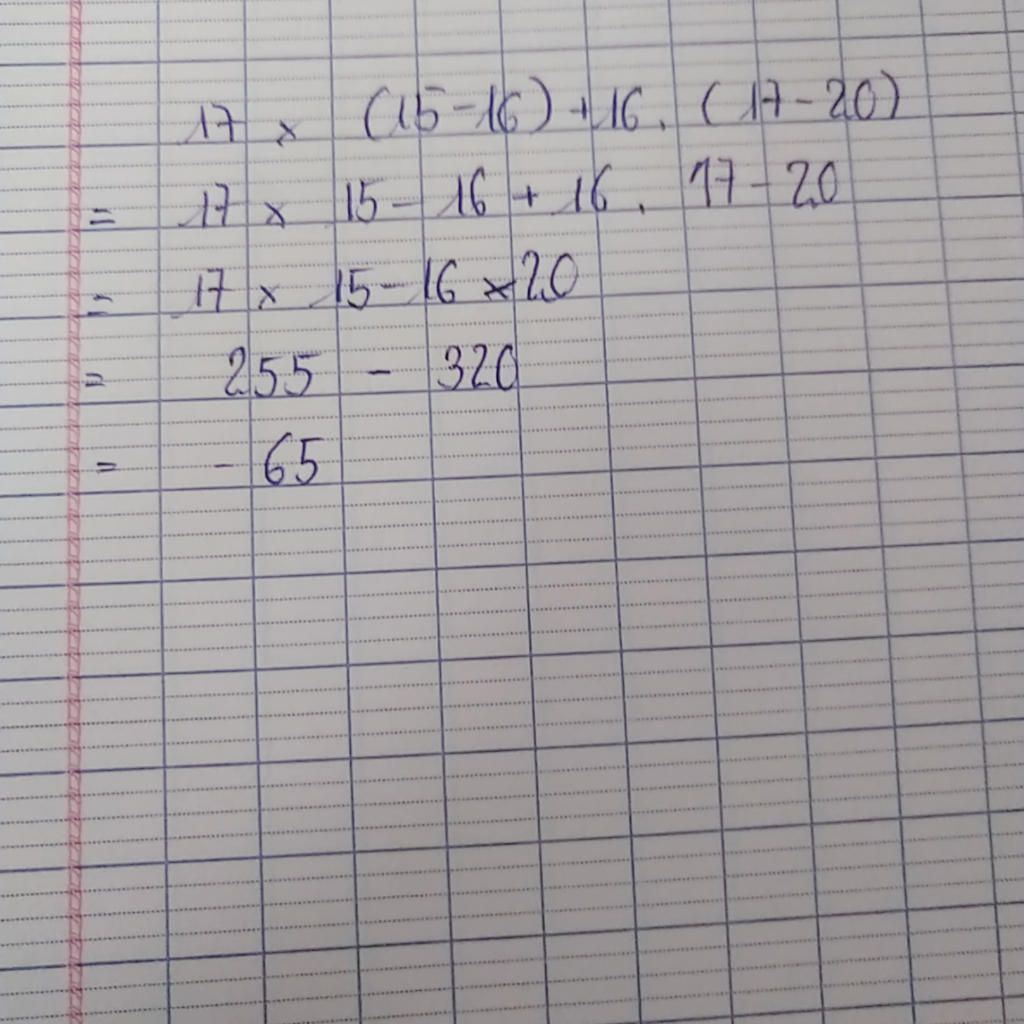 17 x (15-16) + 16. (17-20)
= 17 x 15 - 16 + 16. 17 - 20
= 17 x 15 - 16 x 20
= 255 - 320
= - 65